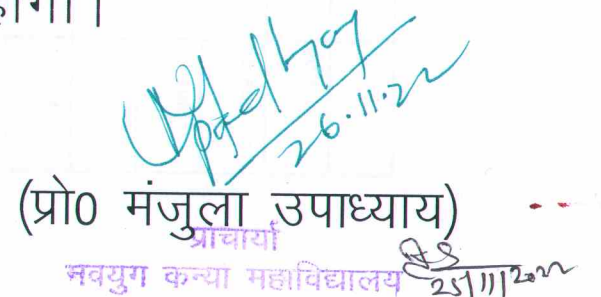 होगा।
Upadhyay
26.11.22
(प्रो0 मंजुला उपाध्याय)
प्राचार्या
नवयुग कन्या महाविद्यालय
25/11/2022